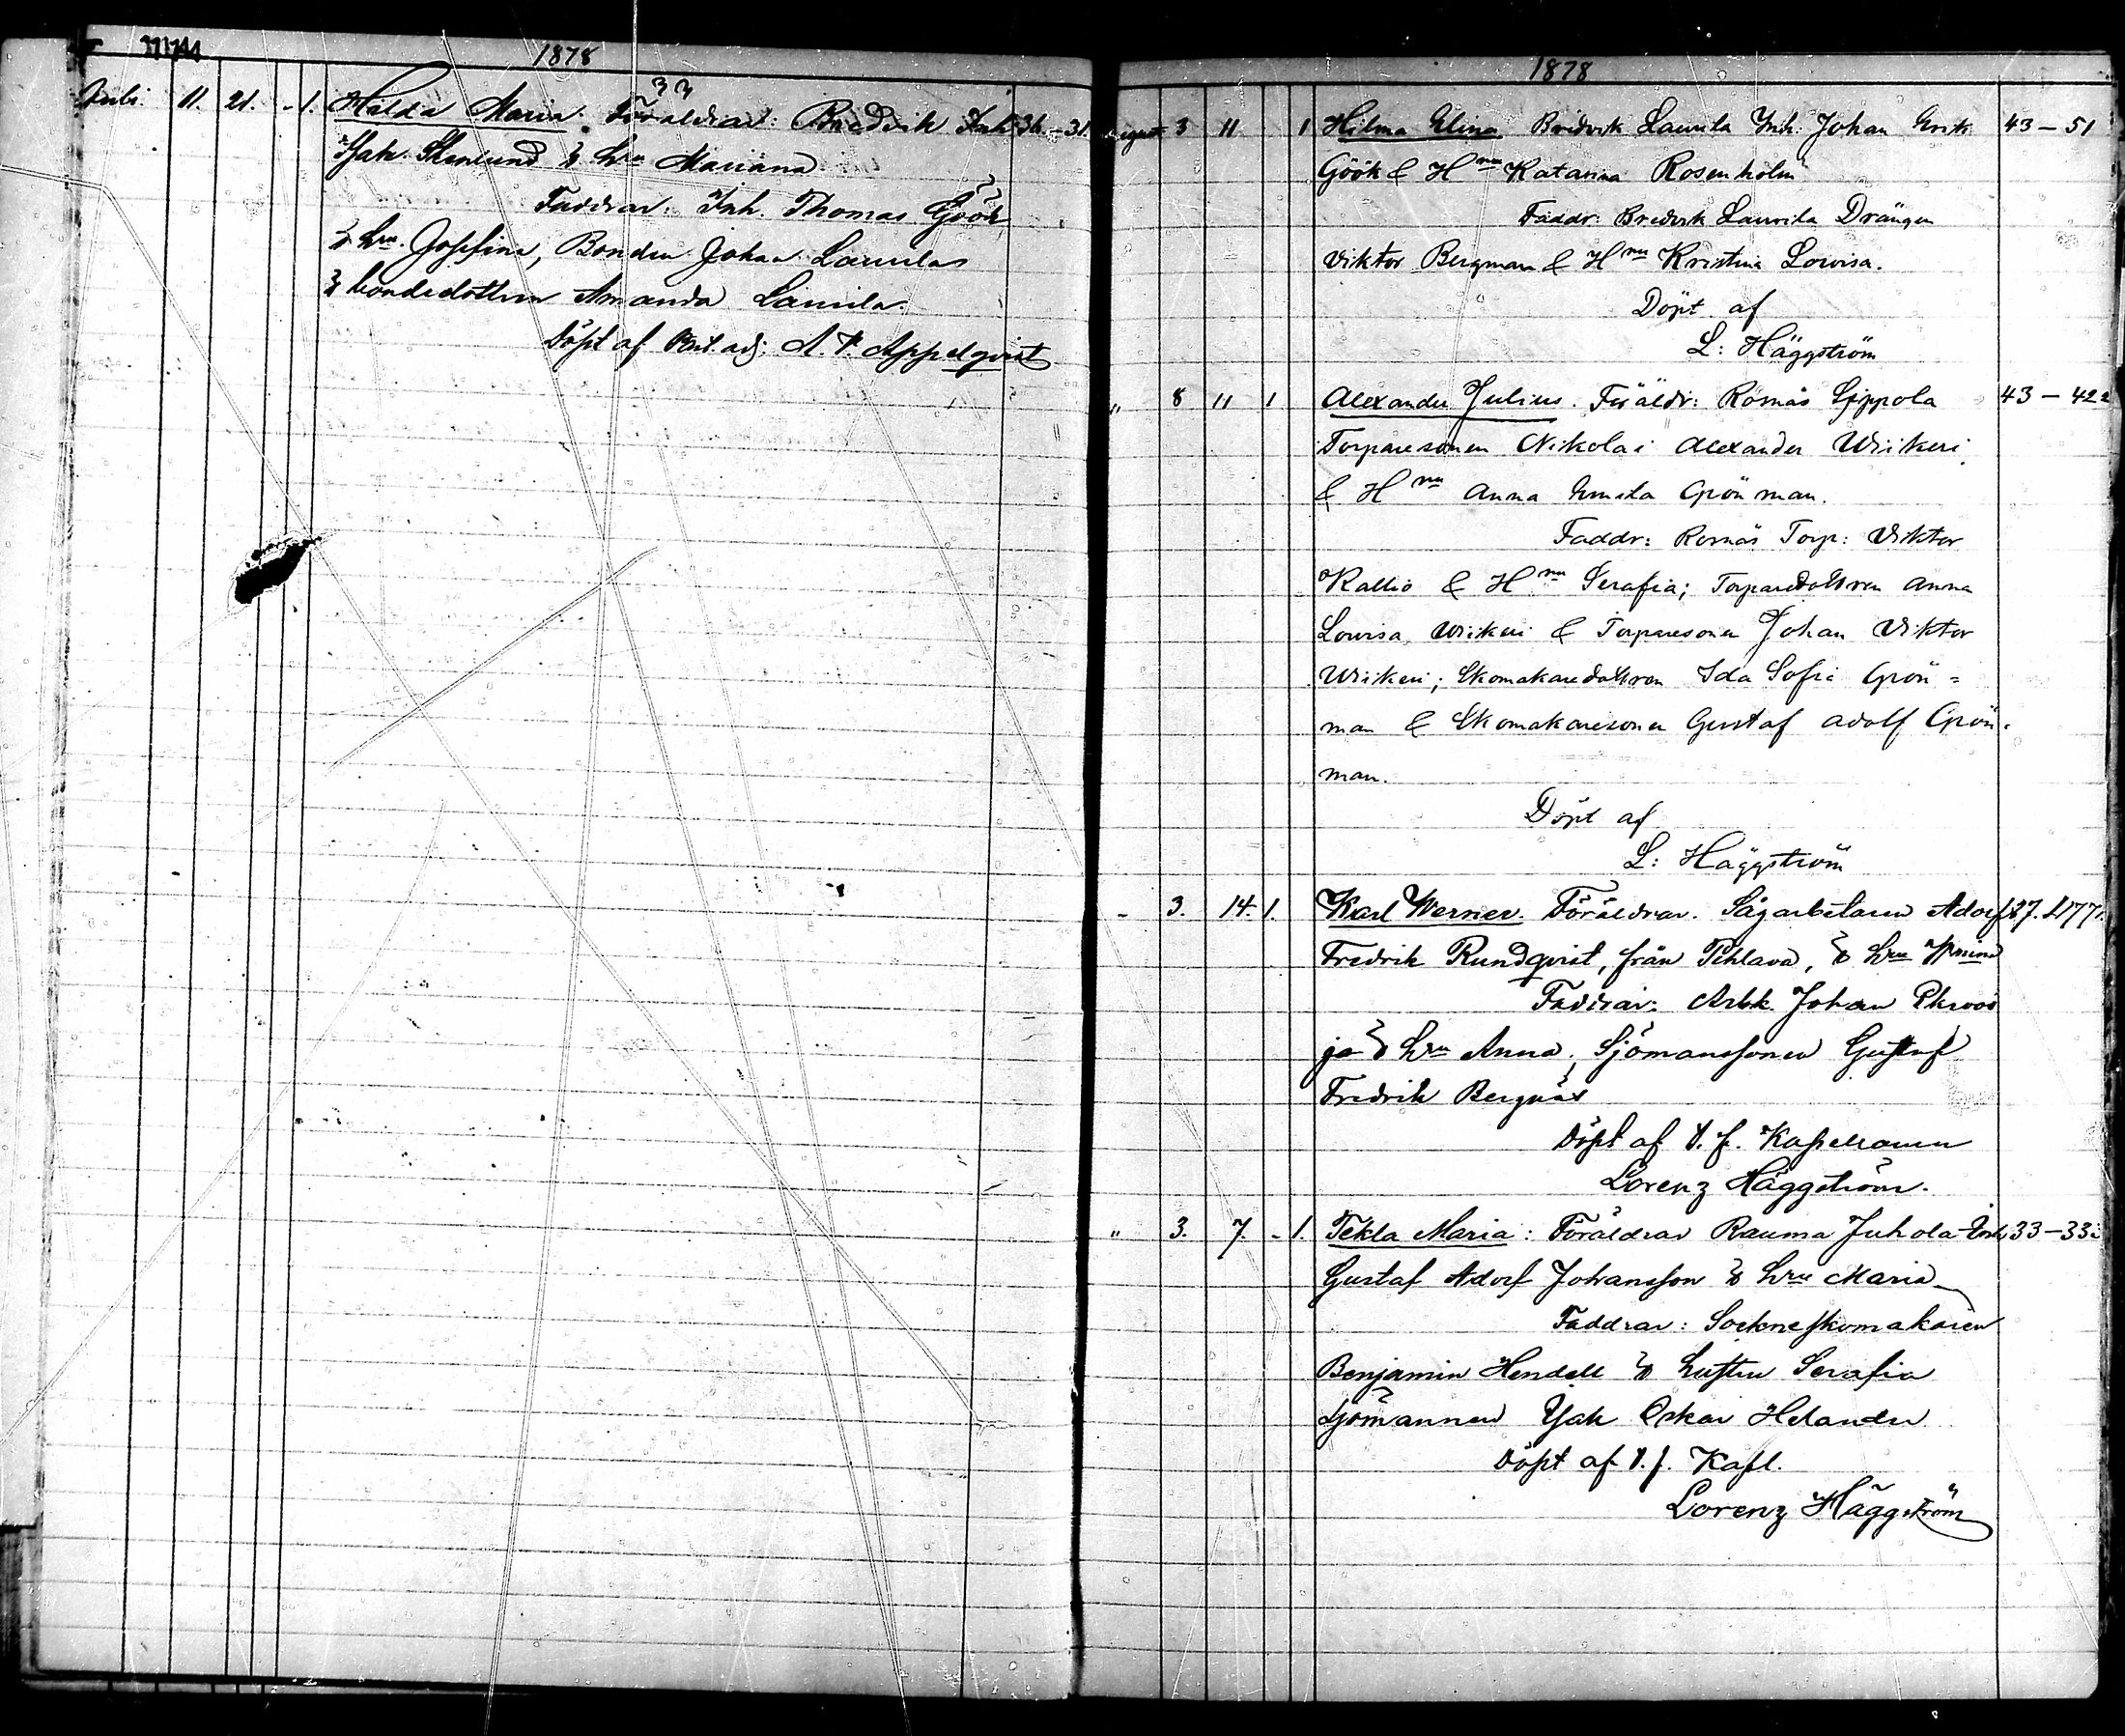 1878
Juli. 11. 21. - 1. Hilda Maria. Föräldrar: Bredvik Inh 36.-31.
Jak. Stenlund & hru Mariana
Faddrar: Inh. Thomas Göök
& hru. Josefina, Bonden Johan Laurila
& bondedottren Amanda Laurila.
Döpt af Past. adj. A. F. Appelqvist
1878
August 3 11 1 Hilma Elina Bredvik Laurila Inh. Johan Erik 43 - 51
Göök & Hru Katarina Rosenholm
Faddr: Bredvik Laurila Drängen
Viktor Bergman & Hru Kristina Lovisa.
Döpt af
L: Häggström
" 8 11 1 Alexander Julius. Föräldr: Rosnäs Sippola 43 - 422
Torparesonen Nikolai Alexander Wiikeri
& Hru Anna Emila Grönman.
Faddr: Rosnäs Torp: Viktor
Kallio & Hru Serafia; Torparedottren Anna
Lovisa Wiikeri & Torparesonen Johan Viktor
Wiikeri; Skomakaredottren Ida Sofia Grön=
man & Skomakaresonen Gustaf Adolf Grön-
man.
Döpt af
L: Häggström
- 3. 14. 1. Karl Werner. Föräldrar. Sågarbetaren Adolf
Fredrik Rundqvist, från Pihlava, & hru
Faddrar: Arbk. Johan
ja & hru Anna, Sjömanssonen Gustaf
Fredrik Bergnäs
Döpt af V. f. Kapellanen
Lorenz Häggström.
" 3. 7. - 1. Tekla Maria: Föräldrar Rauma Juhola Inh. 33-33
Gustaf Adolf Johansson & hru Maria
Faddrar: Sockneskomakaren
Benjamin Hendell & hustru Serafia
Sjömannen Jak Oskar Helander
Döpt af V. f. Kapl.
Lorenz Häggström